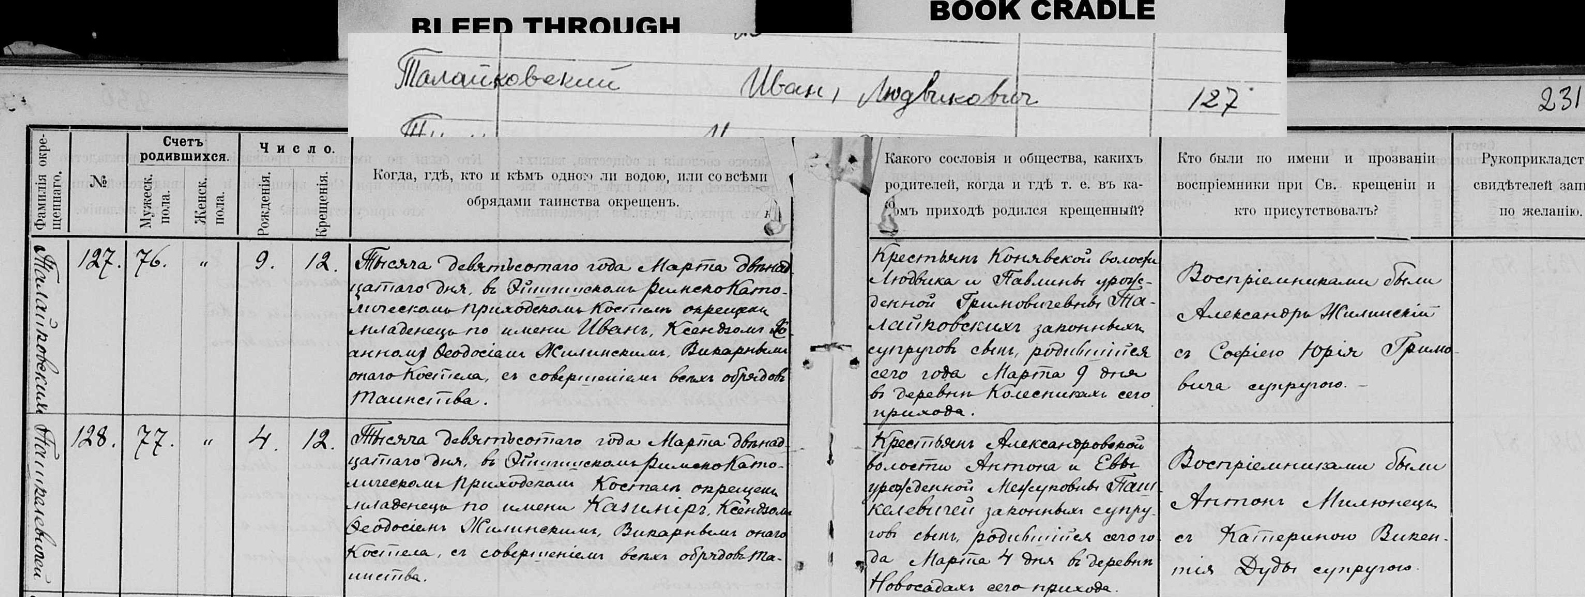 BLEED THROUGH
BOOK CRADLE
Талайковский Иванъ Людвиковичъ 127
231
Фамилія окре-
щеннаго.
№
Счетъ
родившихся.
Мужеск.
пола.
Женск.
пола.
Число.
Рожденія.
Крещенія.
Когда, гдѣ, кто и кѣмъ одною ли водою, или со всѣми
обрядами таинства окрещенъ.
Какого сословія и общества, какихъ
родителей, когда и гдѣ т. е. въ ка-
комъ приходѣ родился крещенный?
Кто были по имени и прозваніи
воспріемники при Св. крещеніи и
кто присутствовалъ?
Рукоприкладст
свидѣтелей зап
по желанію.
Талайковскихъ
127. 76. „ 9. 12.
Тысяча девятьсотаго года Марта двѣнад-
цатаго дня, въ Эйшишскомъ Римско Като-
лическомъ Приходскомъ Костелѣ окрещенъ
младенецъ по имени Иванъ, Ксендзомъ Іо-
анномъ Ѳеодосіемъ Жилинскимъ, Викарнымъ
онаго Костела, съ совершеніемъ всѣхъ обрядовъ
Таинства.
Крестьянъ Конявской волости
Людвика и Павлины урож-
денной Гримовичевны Та-
лайковскихъ законныхъ
супруговъ сынъ, родившійся
сего года Марта 9 дня
въ деревнѣ Колесникахъ сего
прихода.
Воспріемниками были
Александръ Жилинскій
съ Софіею Юрія Гримо-
вича супругою.
Пашкелевичей
128. 77. „ 4. 12.
Тысяча девятьсотаго года Марта двѣнад-
цатаго дня, въ Эйшишскомъ Римско Като-
лическомъ Приходскомъ Костелѣ окрещенъ
младенецъ по имени Казиміръ, Ксендзомъ
Ѳеодосіемъ Жилинскимъ, Викарнымъ онаго
Костела, съ совершеніемъ всѣхъ обрядовъ Та-
инства.
Крестьянъ Александровской
волости Антона и Евы
урожденной Межуковны Паш-
келевичей законныхъ супру-
говъ сынъ, родившійся сего го-
да Марта 4 дня въ деревнѣ
Новосадахъ сего прихода.
Воспріемниками были
Антонъ Милюнецъ
съ Катериною Викен-
тія Дуды супругою.